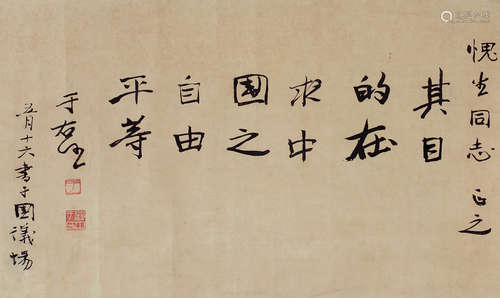 愧生同志正之
其目
的在
求中
國之
自由
平等
于右任
五月十六書于國議場